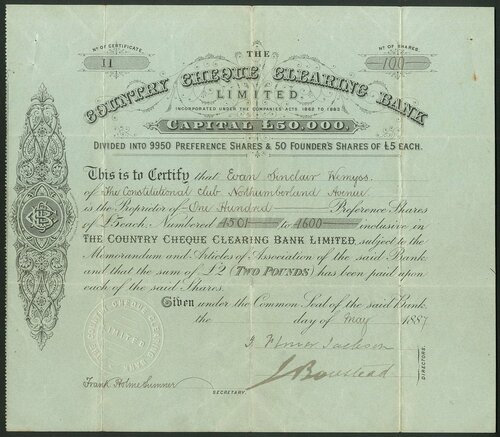 No OF CERTIFICATE.
11
No OF SHARES.
100
THE
COUNTRY CHEQUE CLEARING BANK
LIMITED.
INCORPORATED UNDER THE COMPANIES ACTS, 1862 TO 1883.
CAPITAL £50,000.
DIVIDED INTO 9950 PREFERENCE SHARES & 50 FOUNDER'S SHARES OF £5 EACH.
This is to Certify that Evan Sinclair Wemyss.
of The Constitutional Club Northumberland Avenue
is the Proprietor of One Hundred Preference Shares
of £5 each. Numbered 4501 to 4600 inclusive in
THE COUNTRY CHEQUE CLEARING BANK LIMITED, subject to the
Memorandum and Articles of Association of the said Bank
and that the sum of £2 (TWO POUNDS) has been paid upon
each of the said Shares.
Given under the Common Seal of the said Bank
the day of May 1887
THE COUNTRY CHEQUE CLEARING BANK
LIMITED
Jackson
J Boustead
DIRECTORS.
Frank Holme Sumner
SECRETARY.